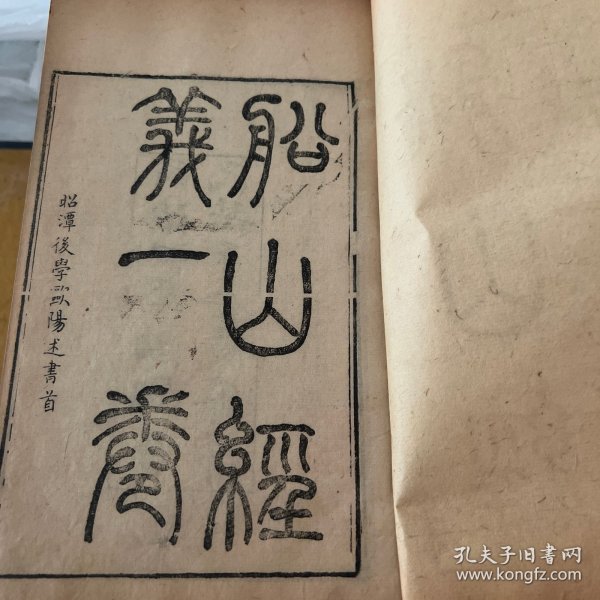 船山經
義一卷
昭潭後學歐陽述書首
孔夫子旧書网
www.kongfz.com